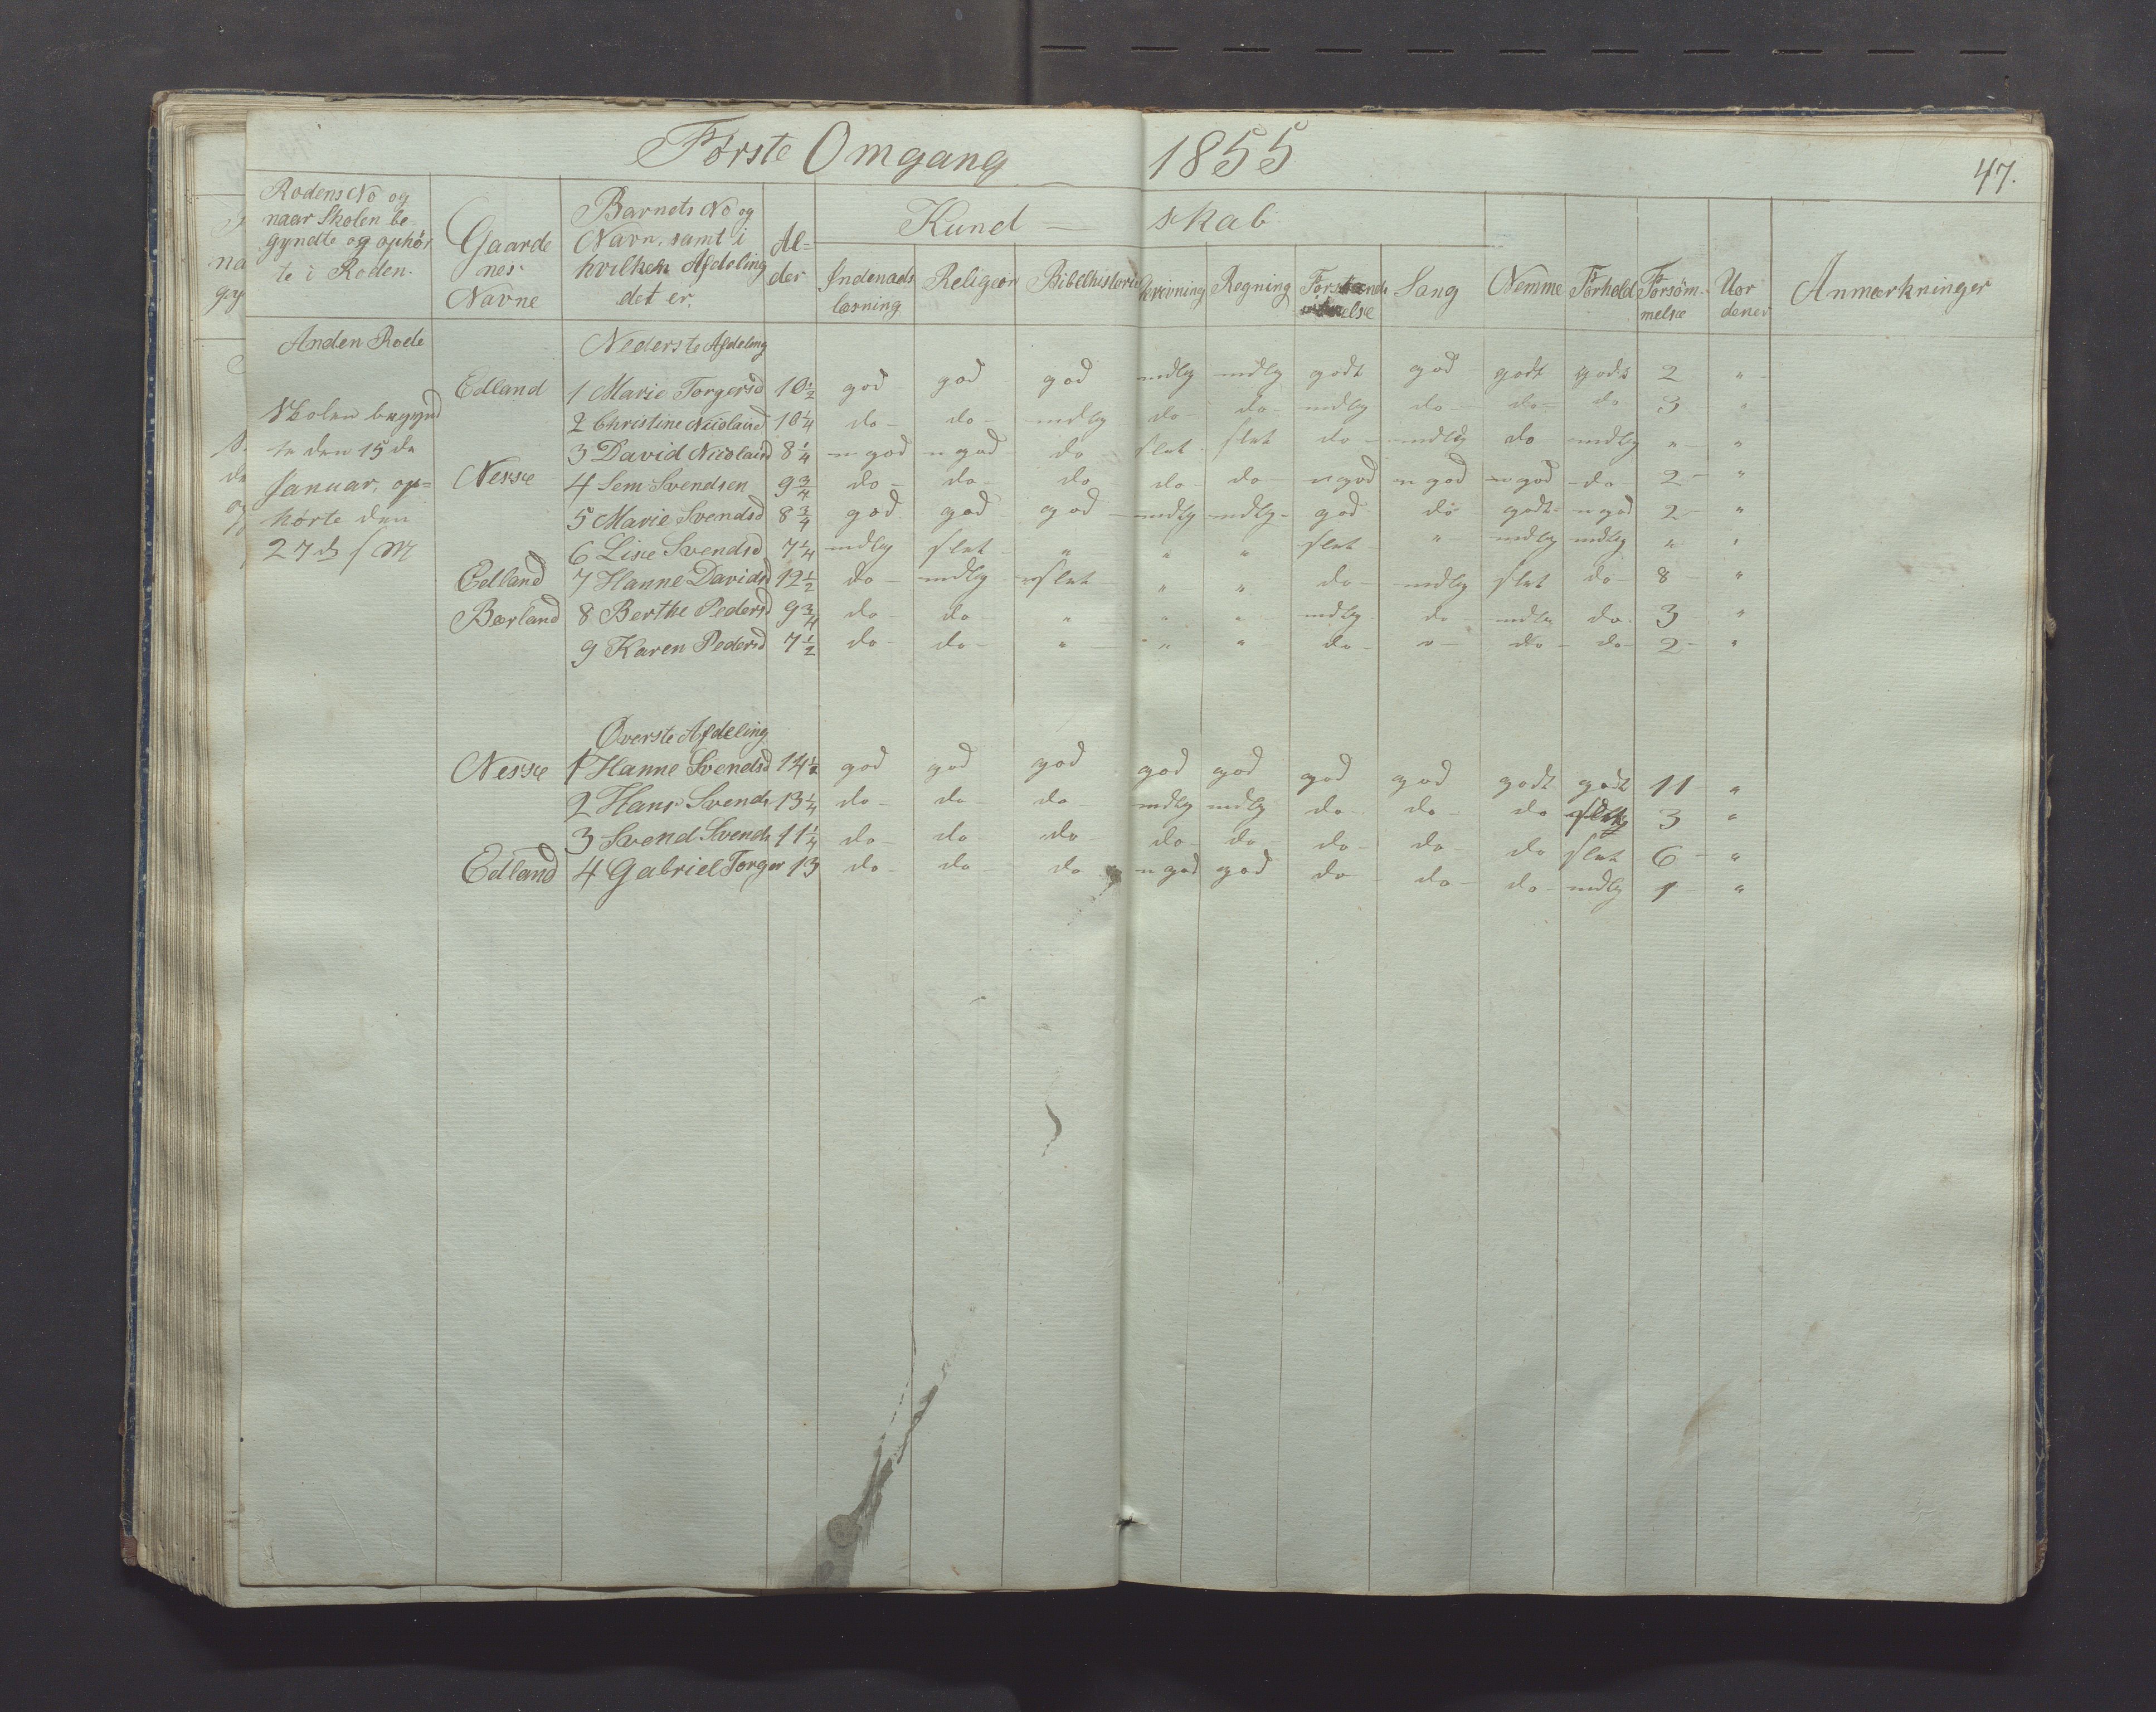 Første Omgang 1855
47.
Rodens No og
naar Skolen be
gyndte og ophør
te i Roden.
Gaarde
nes
Navne
Barnets No og
Navn, samt i
hvilken Afdeling
det er.
Al=
der
Kund — skab
Indenads
læsning
Religion
Bibelhistorie
Skrivning
Regning
Forstands
øvelse
Sang
Nemme
Forhold
Forsøm-
melse
Uor
dener
Anmærkninger
Anden Rode
Nederste Afdeling
Skolen begynd
te den 15de
Januar, op=
hørte den
27d s M
Edland 1 Marie Torgersd 10½ god god god mdlg mdlg godt god godt godt 2 "
2 Christine Nicolaisd 10¼ do do mdlg do do mdlg do do do 3 "
3 David Nicolais 8¼ n god n god do slet slet do mdlg do mdlg " "
Nesse 4 Sem Svendsen 9¾ do do do do do n god n god n god do 2 "
5 Marie Svendsd 8¾ god god god mdlg mdlg god do godt n god 2 "
6 Lise Svendsd 7¼ mdlg slet " " " slet " mdlg mdlg " "
Edland 7 Hanne Davidsd 12½ do mdlg slet " " do mdlg slet do 8 "
Bærland 8 Berthe Pedersd 9¾ do do " " " mdlg do mdlg do 3 "
9 Karen Pedersd 7½ do do " " " do " do do 2 "
Øverste Afdeling
Nesse 1 Hanne Svendsd 14½ god god god god god god god godt godt 11 "
2 Hans Svends 13¼ do do do mdlg mdlg do do do 3 "
3 Svend Svends 11¼ do do do do do do do do slet 6 "
Edland 4 Gabriel Torger 13 do do do n god god do do do mdlg 1 "